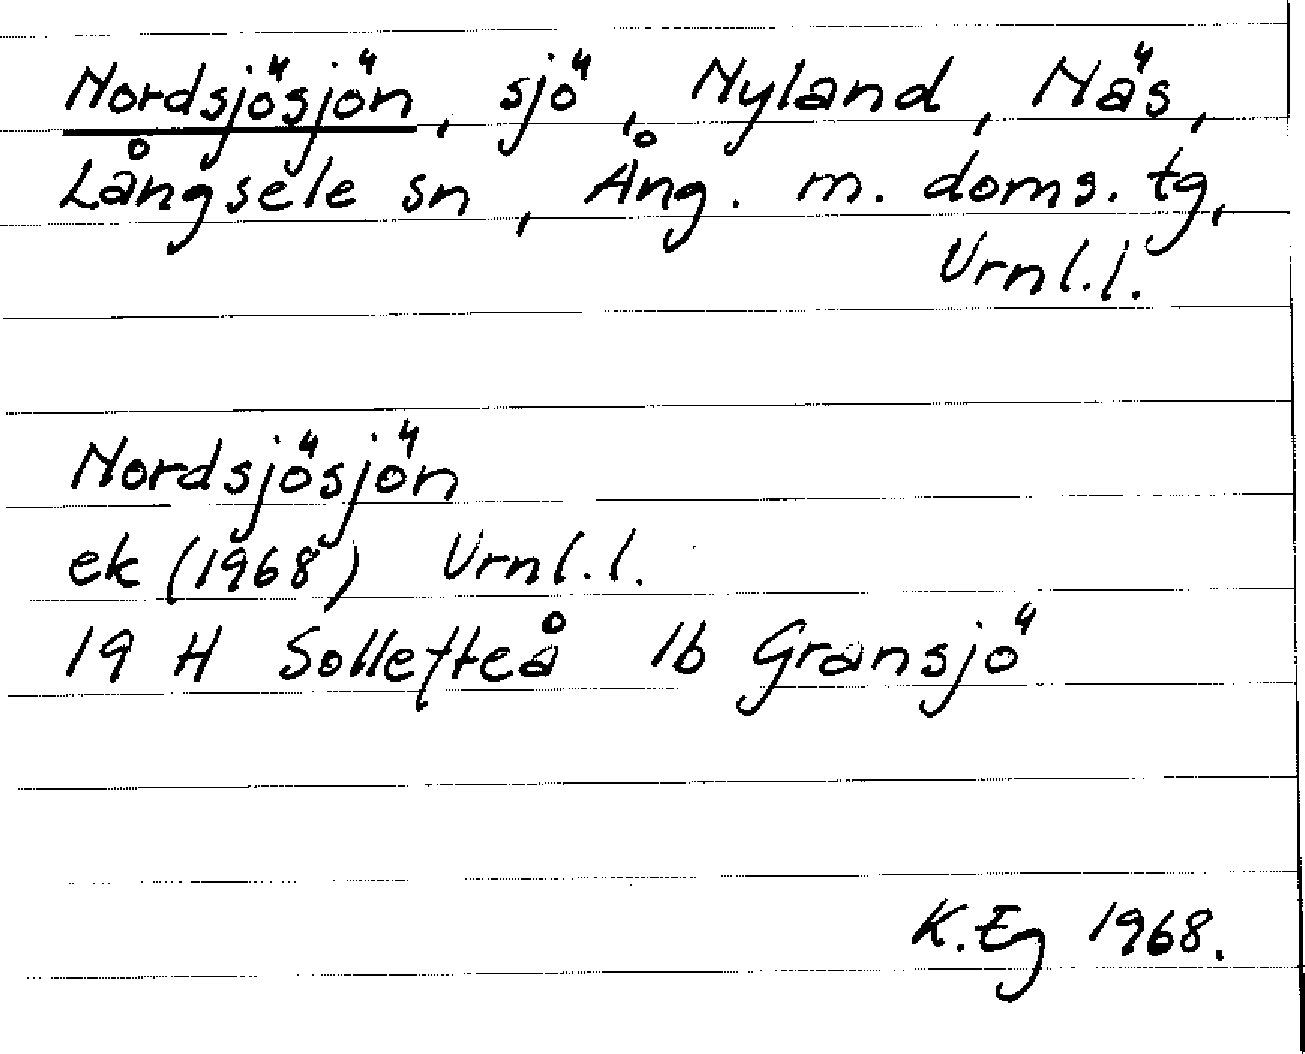 Nordsjösjön, sjö, Nyland, Näs,
Långsele sn, Ång. m. doms. tg,
Urnl.l.
Nordsjösjön
ek (1968) Urnl.l.
19 H Sollefteå 1b Gransjö
K.Eg 1968.